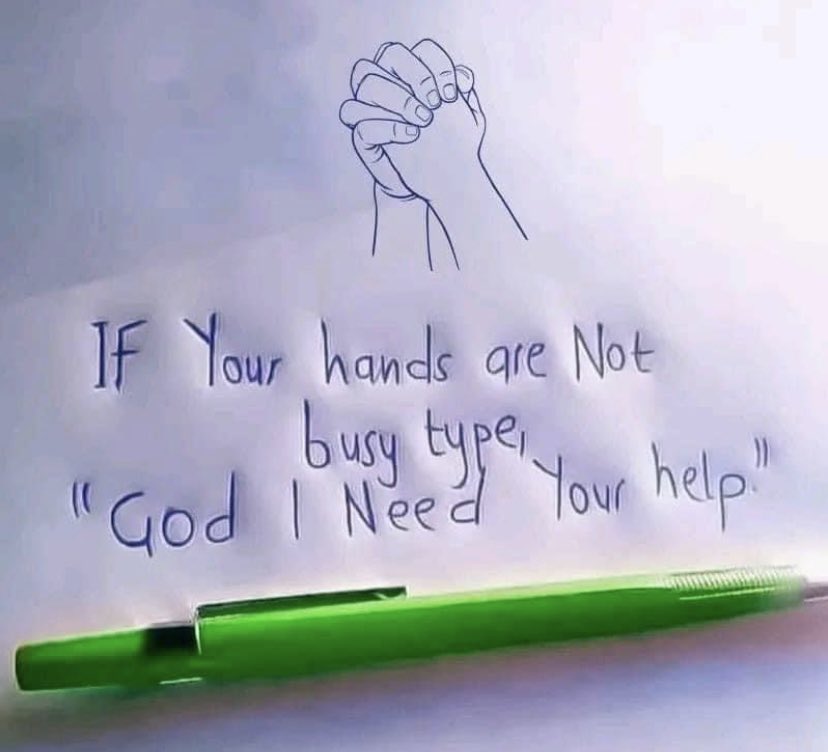 IF Your hands are Not
busy type,
"God I Need Your help."